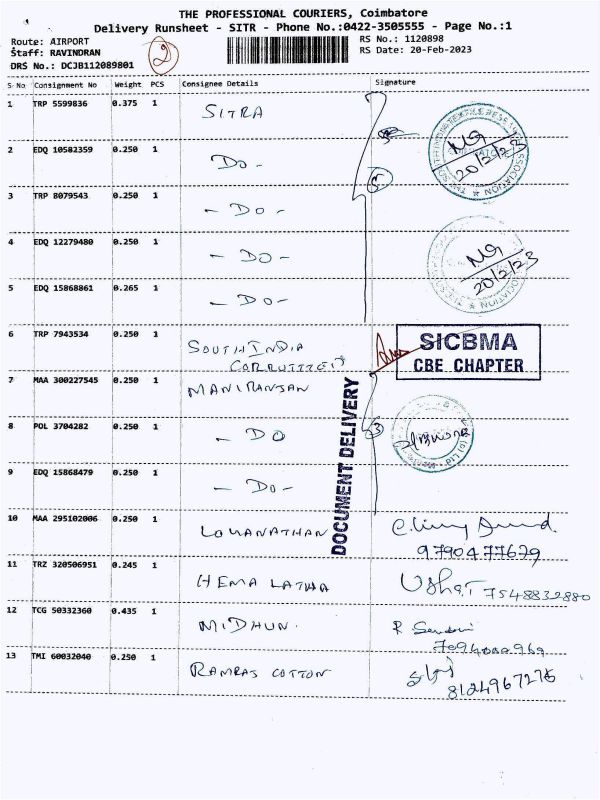 THE PROFESSIONAL COURIERS, Coimbatore
Delivery Runsheet - SITR - Phone No.:0422-3505555 - Page No.:1
Route: AIRPORT
RS No.: 1120898
Staff: RAVINDRAN
RS Date: 20-Feb-2023
DRS No.: DCJB112089801
2
S No Consignment No Weight PCS Consignee Details Signature
1 TRP 5599836 0.375 1 SITRA
2 EDQ 10582359 0.250 1 DO -
5
20/2/23
ASSOCIATION
3 TRP 8079543 0.250 1 - DO -
4 EDQ 12279480 0.250 1 - DO -
20/2/23
5 EDQ 15868861 0.265 1 - DO -
6 TRP 7943534 0.250 1 SOUTH INDIA
SICBMA
CBE CHAPTER
7 MAA 300227545 0.250 1 MANIRANJAN
8 POL 3704282 0.250 1 - DO
3
9 EDQ 15868479 0.250 1 - DO -
DOCUMENT DELIVERY
10 MAA 295102006 0.250 1 LOUANATHAN
9790477629
11 TRZ 320506951 0.245 1 HEMA LATHA Usha.T 7548832880
12 TCG 50332360 0.435 1 MIDHUN.
13 TMI 60032040 0.250 1 RAMRAS COTTON
8124967276